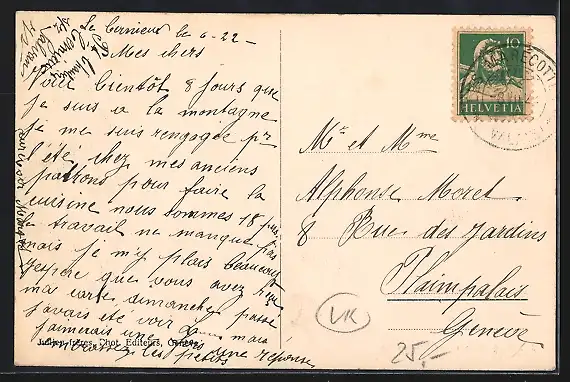 Le Cernieux le 6-22-
Mes chers
Voici bientôt 8 jours que
je suis a la montagne
je me suis rengagée pr
l'été chez mes anciens
patrons pour faire la
cuisine nous sommes 18 pers.
le travail ne manque pas
mais je m'y plais beaucoup
j'espère que vous avez reçu
ma carte dimanche passé
j'avais été voir mais
j'aimerais une une réponse
embrassez les petits
Jullien frères, Phot. Editeurs, Genève
10
HELVETIA
MARECOTTES
Mr et Mme
Alphonse Moret.
8 Rue des Jardins
Plainpalais
Genève
VK
25.-